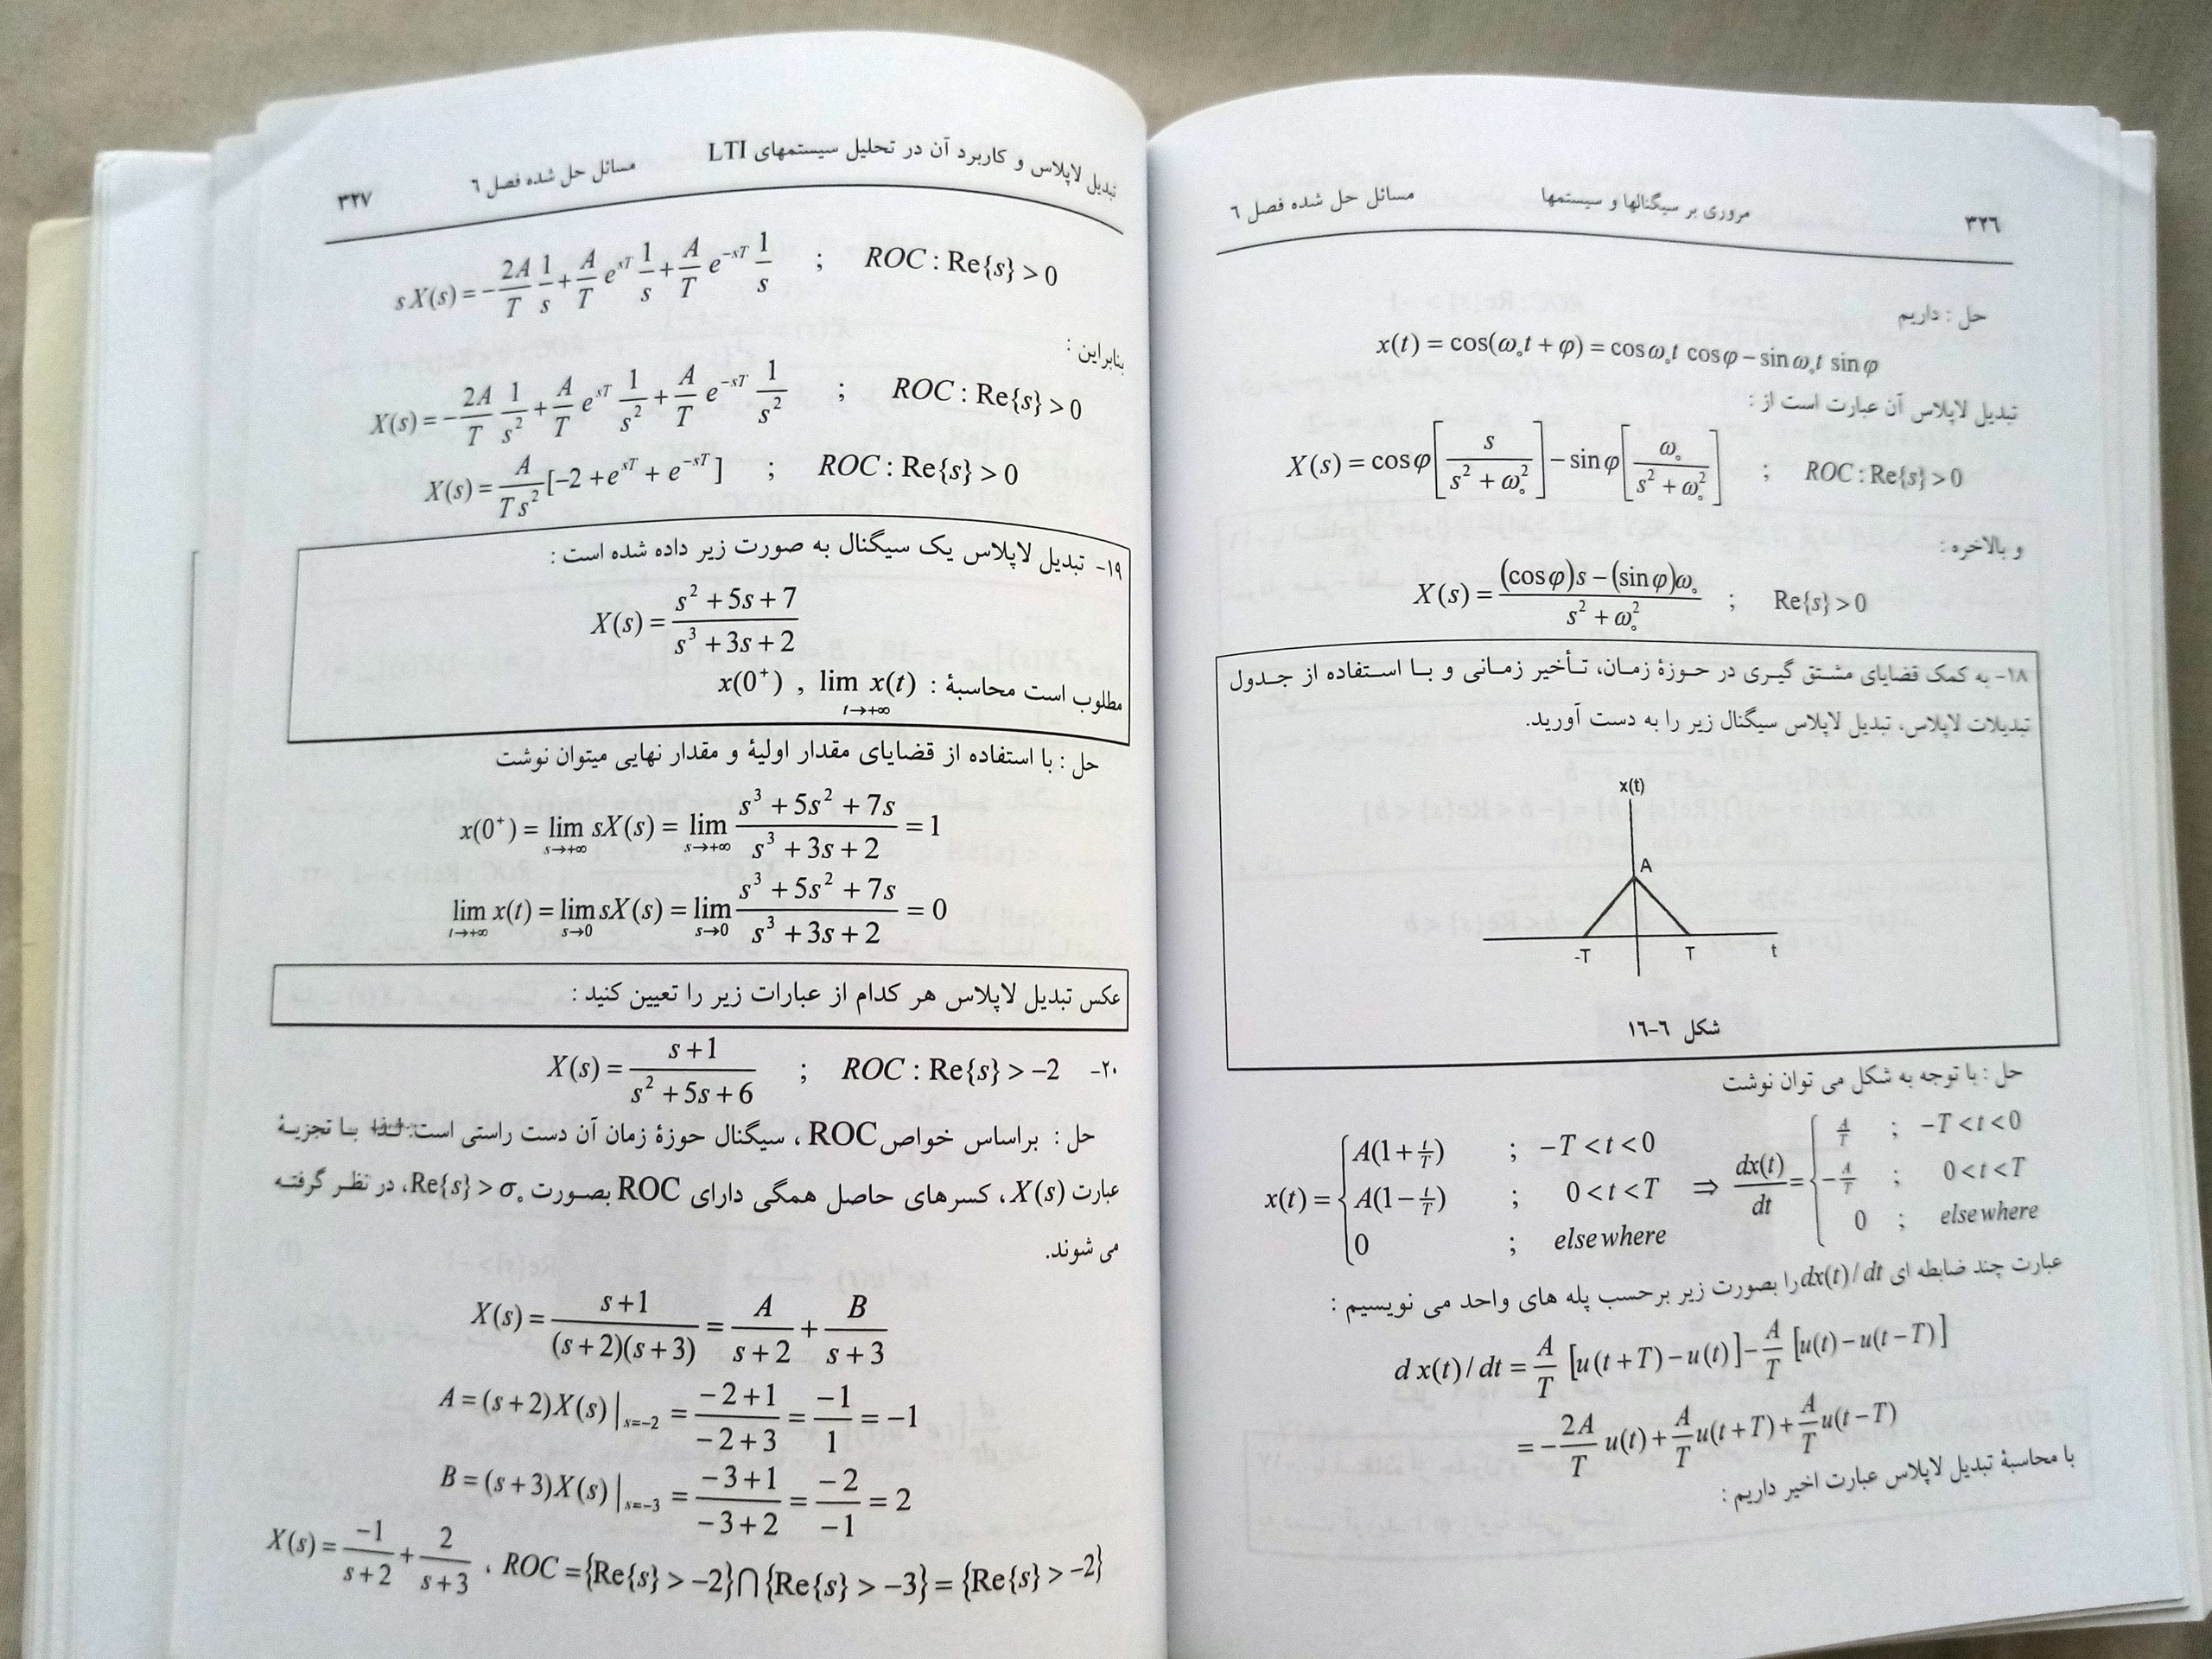 ۳۲٦ مروری بر سیگنالها و سیستمها مسائل حل شده فصل ٦
حل : داریم
x(t) = cos(ω₀t + φ) = cos ω₀t cos φ − sin ω₀t sin φ
تبدیل لاپلاس آن عبارت است از :
X(s) = cos φ [s / (s² + ω₀²)] − sin φ [ω₀ / (s² + ω₀²)] ; ROC : Re{s} > 0
و بالاخره :
X(s) = ((cos φ)s − (sin φ)ω₀) / (s² + ω₀²) ; Re{s} > 0
۱۸- به کمک قضایای مشتق گیری در حوزهٔ زمان، تأخیر زمانی و با استفاده از جدول
تبدیلات لاپلاس، تبدیل لاپلاس سیگنال زیر را به دست آورید.
x(t)
A
-T T t
شکل ٦-۱٦
حل : با توجه به شکل می توان نوشت
x(t) = { A(1 + t/T) ; −T < t < 0 ⇒ dx(t)/dt = { A/T ; −T < t < 0
A(1 − t/T) ; 0 < t < T −A/T ; 0 < t < T
0 ; elsewhere 0 ; elsewhere
عبارت چند ضابطه ای dx(t)/dt را بصورت زیر برحسب پله های واحد می نویسیم :
d x(t)/dt = A/T [u(t+T) − u(t)] − A/T [u(t) − u(t−T)]
= − 2A/T u(t) + A/T u(t+T) + A/T u(t−T)
با محاسبهٔ تبدیل لاپلاس عبارت اخیر داریم :
تبدیل لاپلاس و کاربرد آن در تحلیل سیستمهای LTI مسائل حل شده فصل ٦ ۳۲۷
s X(s) = − 2A/T 1/s + A/T e^{sT} 1/s + A/T e^{−sT} 1/s ; ROC : Re{s} > 0
بنابراین :
X(s) = − 2A/T 1/s² + A/T e^{sT} 1/s² + A/T e^{−sT} 1/s² ; ROC : Re{s} > 0
X(s) = A/(T s²) [−2 + e^{sT} + e^{−sT}] ; ROC : Re{s} > 0
۱۹- تبدیل لاپلاس یک سیگنال به صورت زیر داده شده است :
X(s) = (s² + 5s + 7) / (s³ + 3s + 2)
مطلوب است محاسبهٔ : x(0⁺) , lim_{t→+∞} x(t)
حل : با استفاده از قضایای مقدار اولیهٔ و مقدار نهایی میتوان نوشت
x(0⁺) = lim_{s→+∞} sX(s) = lim_{s→+∞} (s³ + 5s² + 7s) / (s³ + 3s + 2) = 1
lim_{t→+∞} x(t) = lim_{s→0} sX(s) = lim_{s→0} (s³ + 5s² + 7s) / (s³ + 3s + 2) = 0
عکس تبدیل لاپلاس هر کدام از عبارات زیر را تعیین کنید :
۲۰- X(s) = (s+1) / (s² + 5s + 6) ; ROC : Re{s} > −2
حل : براساس خواص ROC ، سیگنال حوزهٔ زمان آن دست راستی است. لذا با تجزیهٔ
عبارت X(s) ، کسرهای حاصل همگی دارای ROC بصورت Re{s} > σ₀ ، در نظر گرفته
می شوند.
X(s) = (s+1) / ((s+2)(s+3)) = A/(s+2) + B/(s+3)
A = (s+2)X(s)|_{s=−2} = (−2+1)/(−2+3) = −1/1 = −1
B = (s+3)X(s)|_{s=−3} = (−3+1)/(−3+2) = −2/−1 = 2
X(s) = −1/(s+2) + 2/(s+3) ، ROC = {Re{s} > −2} ∩ {Re{s} > −3} = {Re{s} > −2}